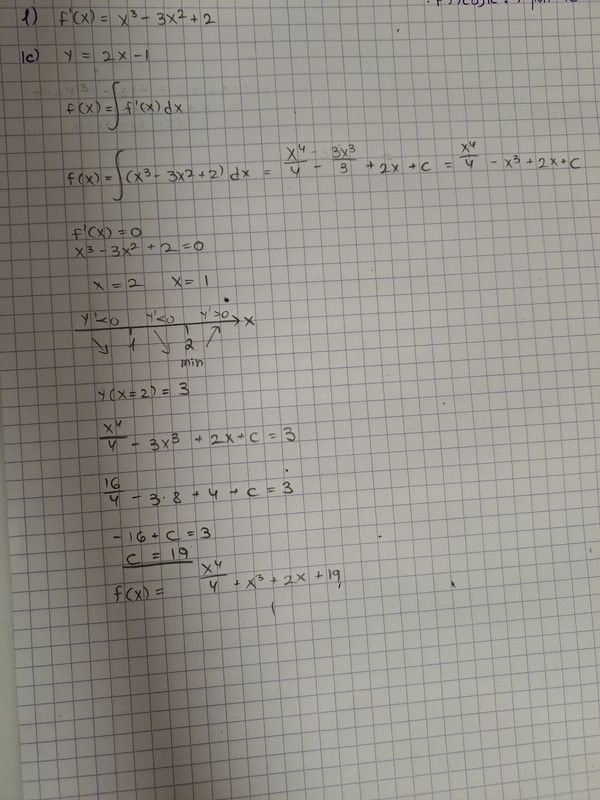 1) f'(x) = x³ - 3x² + 2
1c) y = 2x - 1
f(x) = ∫ f'(x) dx
f(x) = ∫ (x³ - 3x² + 2) dx = x⁴/4 - 3x³/3 + 2x + c = x⁴/4 - x³ + 2x + c
f'(x) = 0
x³ - 3x² + 2 = 0
x = 2 x = 1
y'<0 y'<0 y'>0 x
1 2
min
y(x=2) = 3
x⁴/4 - 3x³ + 2x + c = 3
16/4 - 3·8 + 4 + c = 3
-16 + c = 3
c = 19
f(x) = x⁴/4 + x³ + 2x + 19